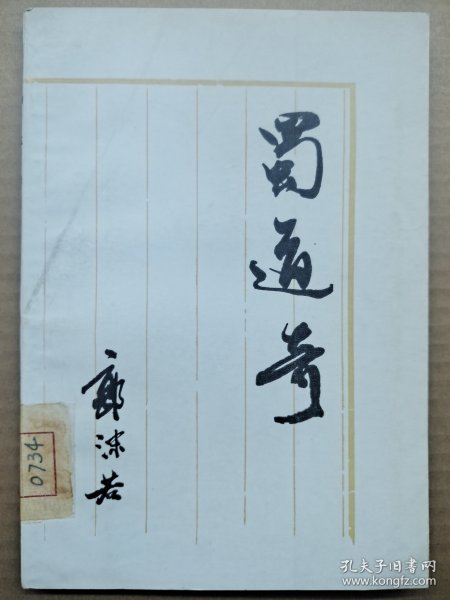 蜀道奇
郭沫若
0734
孔夫子旧书网
www.kongfz.com